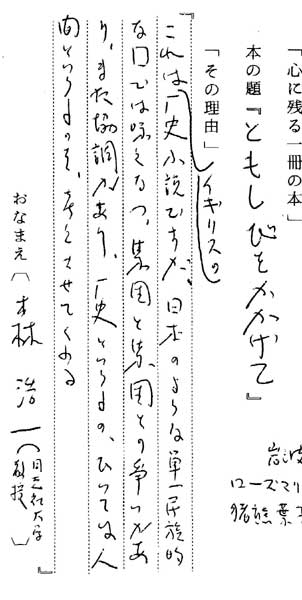 「心に残る一冊の本」
本の題『ともしびをかかげて』
岩波
ローズマリ
猪熊葉
「その理由」
イギリスの
『これは厂史小説ですが、日本のような単一民族的
な国では味えない、集団と集団との争いがあ
り、また協調があり、厂史というもの、ひいては人
間というものを、考えさせてくれる
おなまえ〔林 浩一(同志社大学
教授〕
』